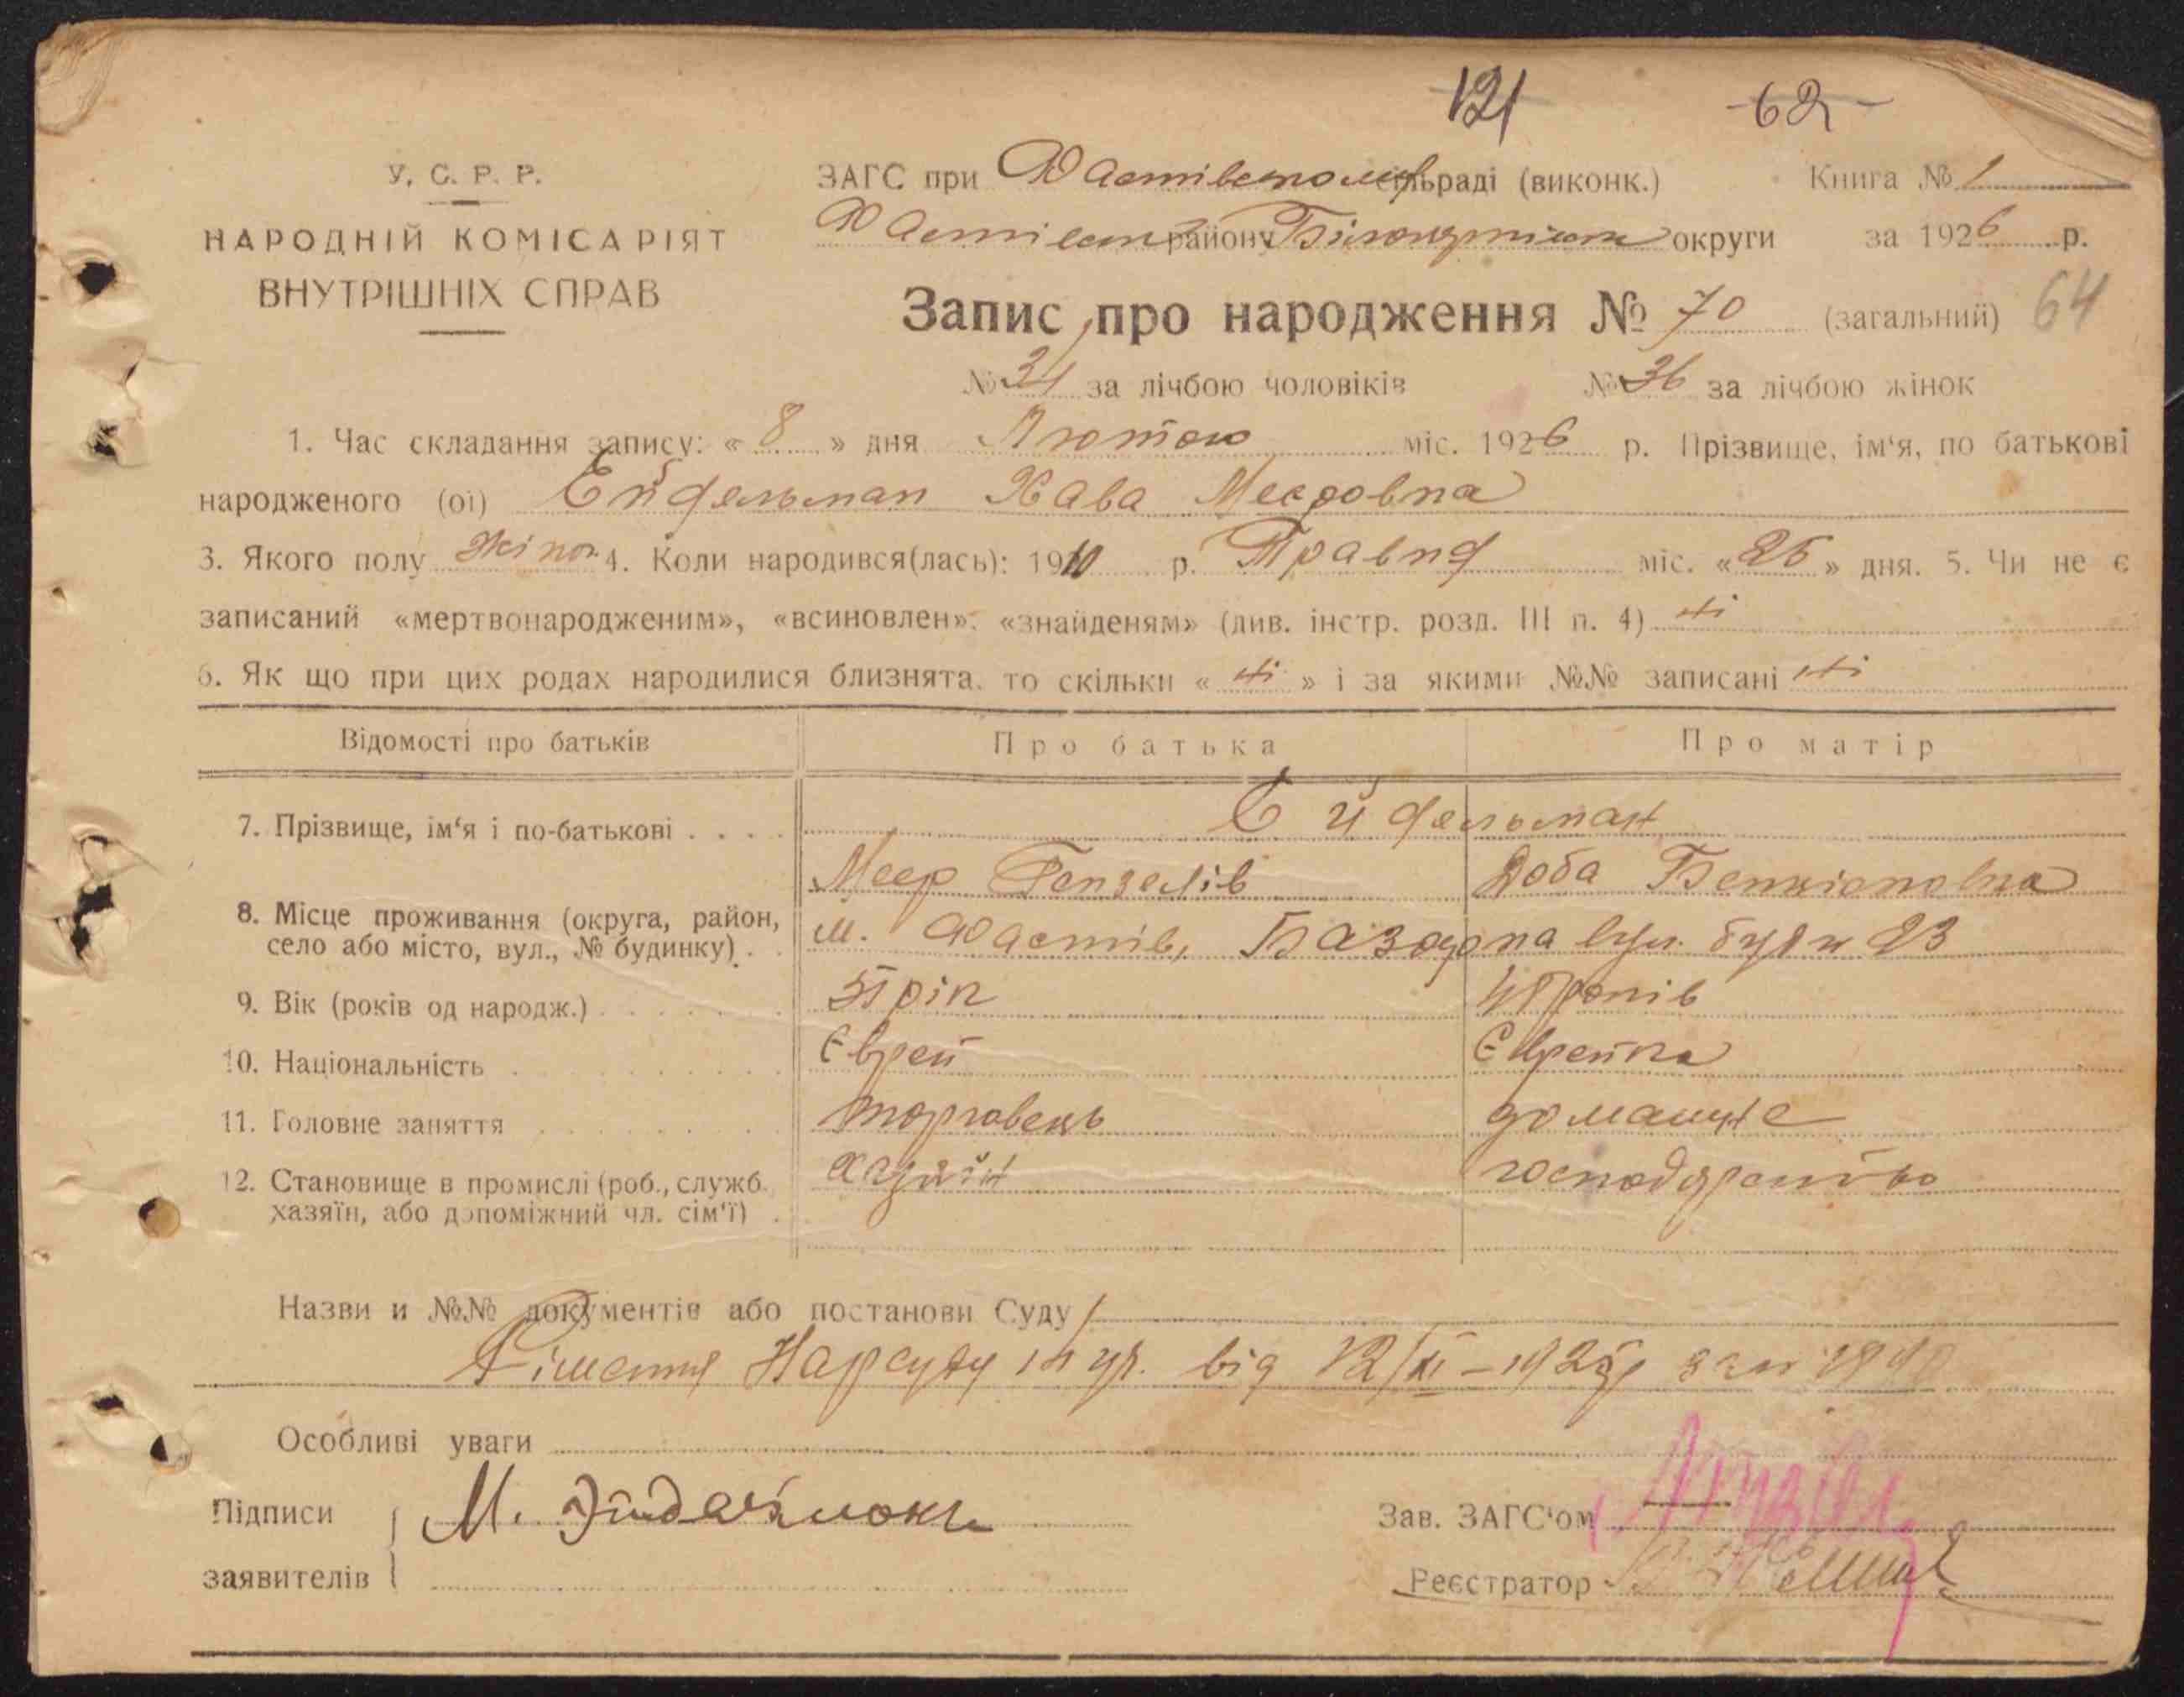 121 -62-
У. С. Р. Р.
НАРОДНІЙ КОМІСАРІЯТ
ВНУТРІШНІХ СПРАВ
ЗАГС при сільраді (виконк.) Книга № 1
району округи за 1926 р.
Запис про народження № 70 (загальний) 64
№ за лічбою чоловіків № 36 за лічбою жінок
1. Час складання запису: « 8 » дня Лютою міс. 1926 р. Прізвище, ім'я, по батькові
народженого (ої) Ейдельман Хава Меєровна
3. Якого полу жіноч. 4. Коли народився(лась): 1910 р. Травня міс. « 26 » дня. 5. Чи не є
записаний «мертвонародженим», «всиновлен», «знайденям» (див. інстр. розд. III п. 4) ні
6. Як що при цих родах народилися близнята, то скільки « ні » і за якими №№ записані ні
Відомості про батьків Про батька Про матір
7. Прізвище, ім'я і по-батькові Ейдельман
Меер Доба Бенціоновна
8. Місце проживання (округа, район,
село або місто, вул., № будинку) м. Фастів, Базарна вул. буд н 23
9. Вік (років од народж.) рік років
10. Національність Єврей Єврейка
11. Головне заняття торговець домашнє
12. Становище в промислі (роб., служб. хазяїн господарство
хазяїн, або допоміжний чл. сім'ї)
Назви и №№ документів або постанови Суду
Рішення Нарсуду від 12/XI-192
Особливі уваги
Підписи М.
заявителів
Зав. ЗАГС'ом
Реєстратор